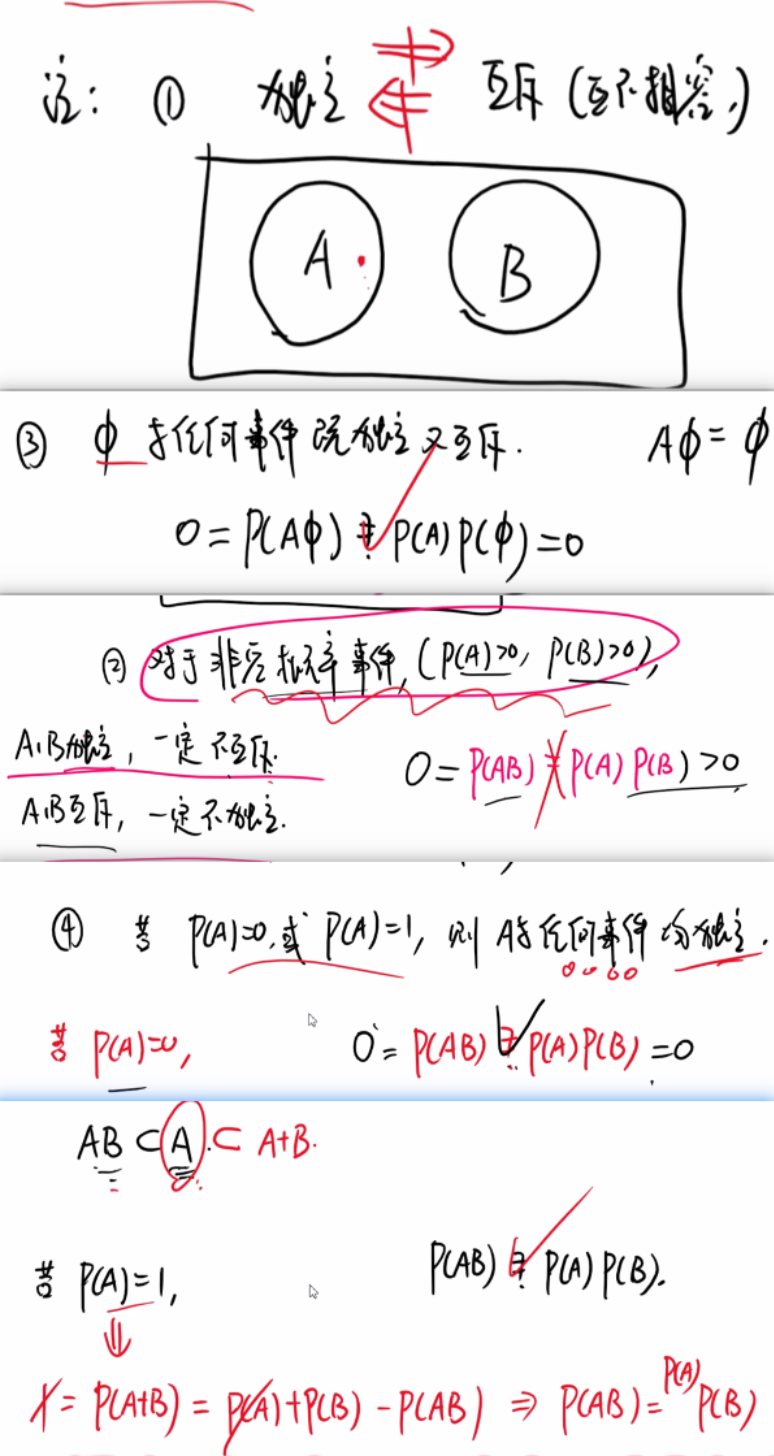 注: ① 独立 ⇏ 互斥 (互不相容)
⇍
A B
③ ϕ 与任何事件既独立又互斥. Aϕ = ϕ
0 = P(Aϕ) ≟ P(A) P(ϕ) = 0
② 对于非零概率事件, (P(A)>0, P(B)>0),
A,B独立, 一定不互斥. 0 = P(AB) ≠ P(A) P(B) > 0
A,B互斥, 一定不独立.
④ 若 P(A)=0, 或 P(A)=1, 则 A与任何事件均独立.
若 P(A)=0, 0 = P(AB) ≟ P(A)P(B) = 0
AB ⊂ A ⊂ A+B.
若 P(A)=1, P(AB) ≟ P(A) P(B).
⇓
1 = P(A+B) = P(A)+P(B) - P(AB) ⇒ P(AB) = P(A) P(B)